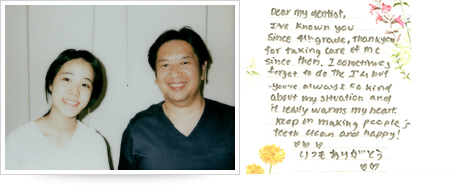 Dear my dentist,
I've known you
since 4th grade, thank you
for taking care of me
since then. I sometimes
forget to do the I.A but
you're always so kind
about my situation and
it really warms my heart.
Keep on making people's
teeth clean and happy!
いつも ありがとう